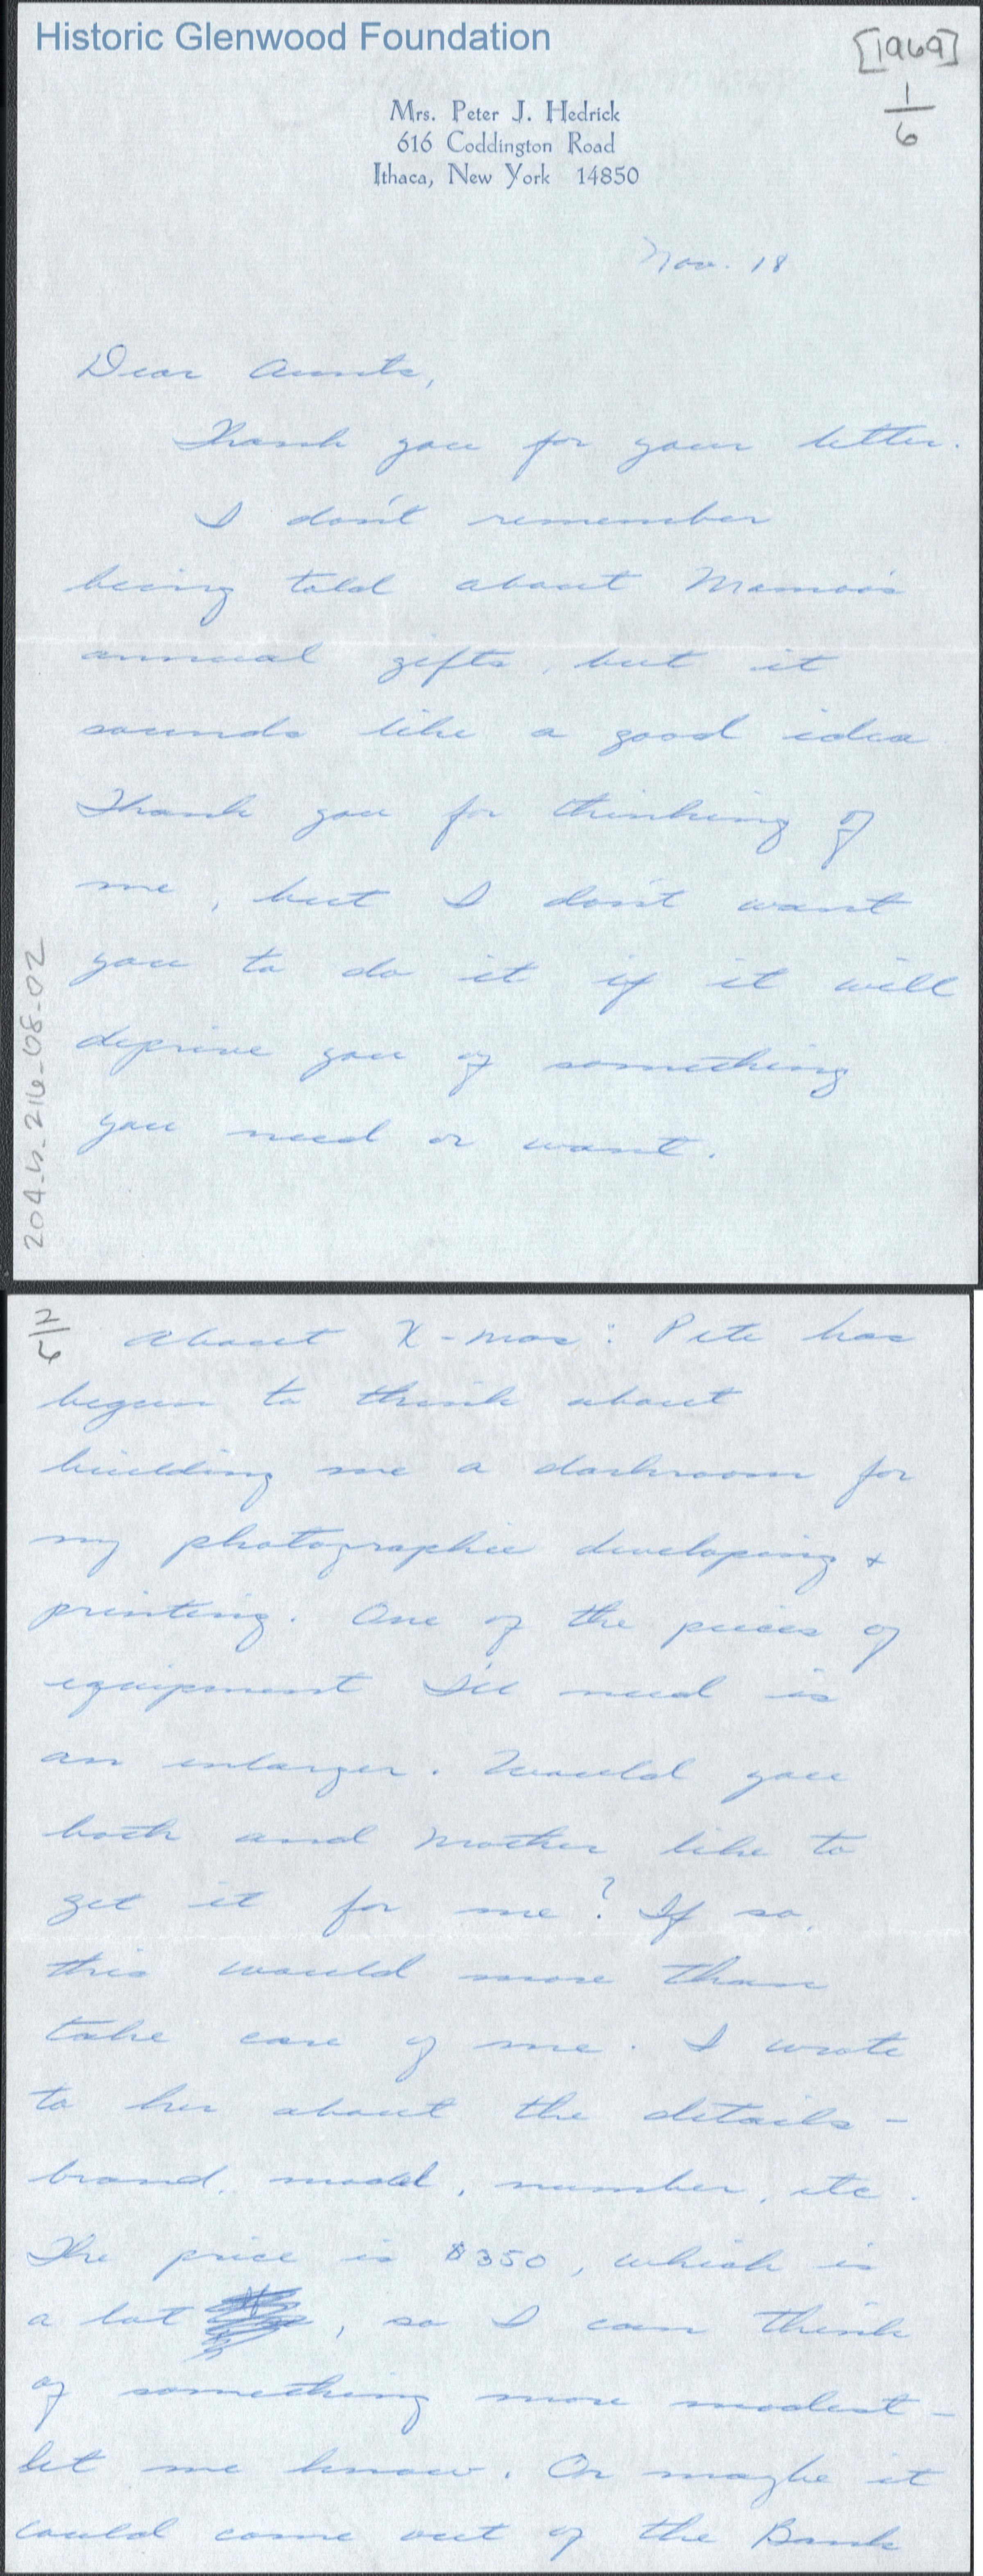 Historic Glenwood Foundation
[1969]
1/6
Mrs. Peter J. Hedrick
616 Coddington Road
Ithaca, New York 14850
Nov. 18
Dear Aunts,
Thank you for your letter.
I don't remember
being told about Mamoo's
annual gifts, but it
sounds like a good idea
Thank you for thinking of
me, but I don't want
you to do it if it will
deprive you of something
you need or want.
204.5.216-08-02
2/6
About X-mas: Pete has
begun to think about
building me a darkroom for
my photographic developing +
printing. One of the pieces of
equipment I'll need is
an enlarger. Would you
both and Mother like to
get it for me? If so,
this would more than
take care of me. I wrote
to her about the details -
brand, model, number, etc.
The price is $350, which is
a lot, so I can think
of something more modest -
let me know. Or maybe it
could come out of the Bank